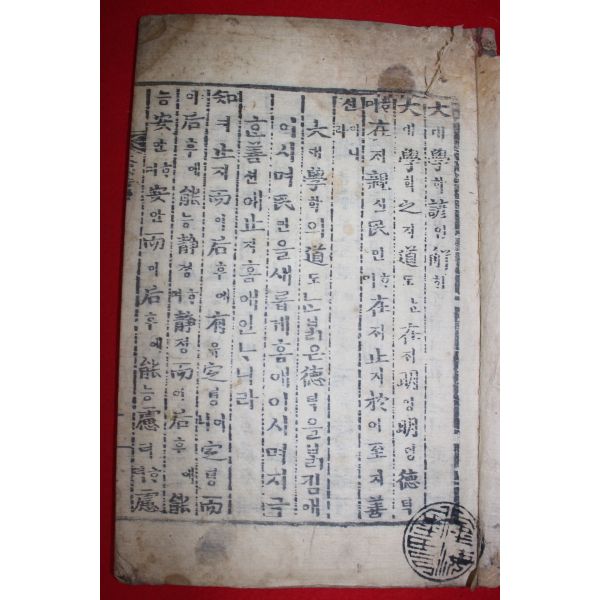 大대學학諺언解ᄒᆡ
大대學학之지道도ᄂᆞᆫ在ᄌᆡ明명明명德덕
ᄒᆞ며在ᄌᆡ親신民민ᄒᆞ며在ᄌᆡ止지於어至지善
션이니라
大대學학의道도ᄂᆞᆫᄇᆞᆰ은德덕을ᄇᆞᆰ킴애
이시며民민을새롭게홈애이시며지극
ᄒᆞᆫ善션에止지홈애인ᄂᆞ니라
知디止지而이后후에有유定뎡이니定뎡而
이后후에能능靜졍ᄒᆞ며靜졍而이后후에能
능安안ᄒᆞ며安안而이后후에能능慮려ᄒᆞ며慮